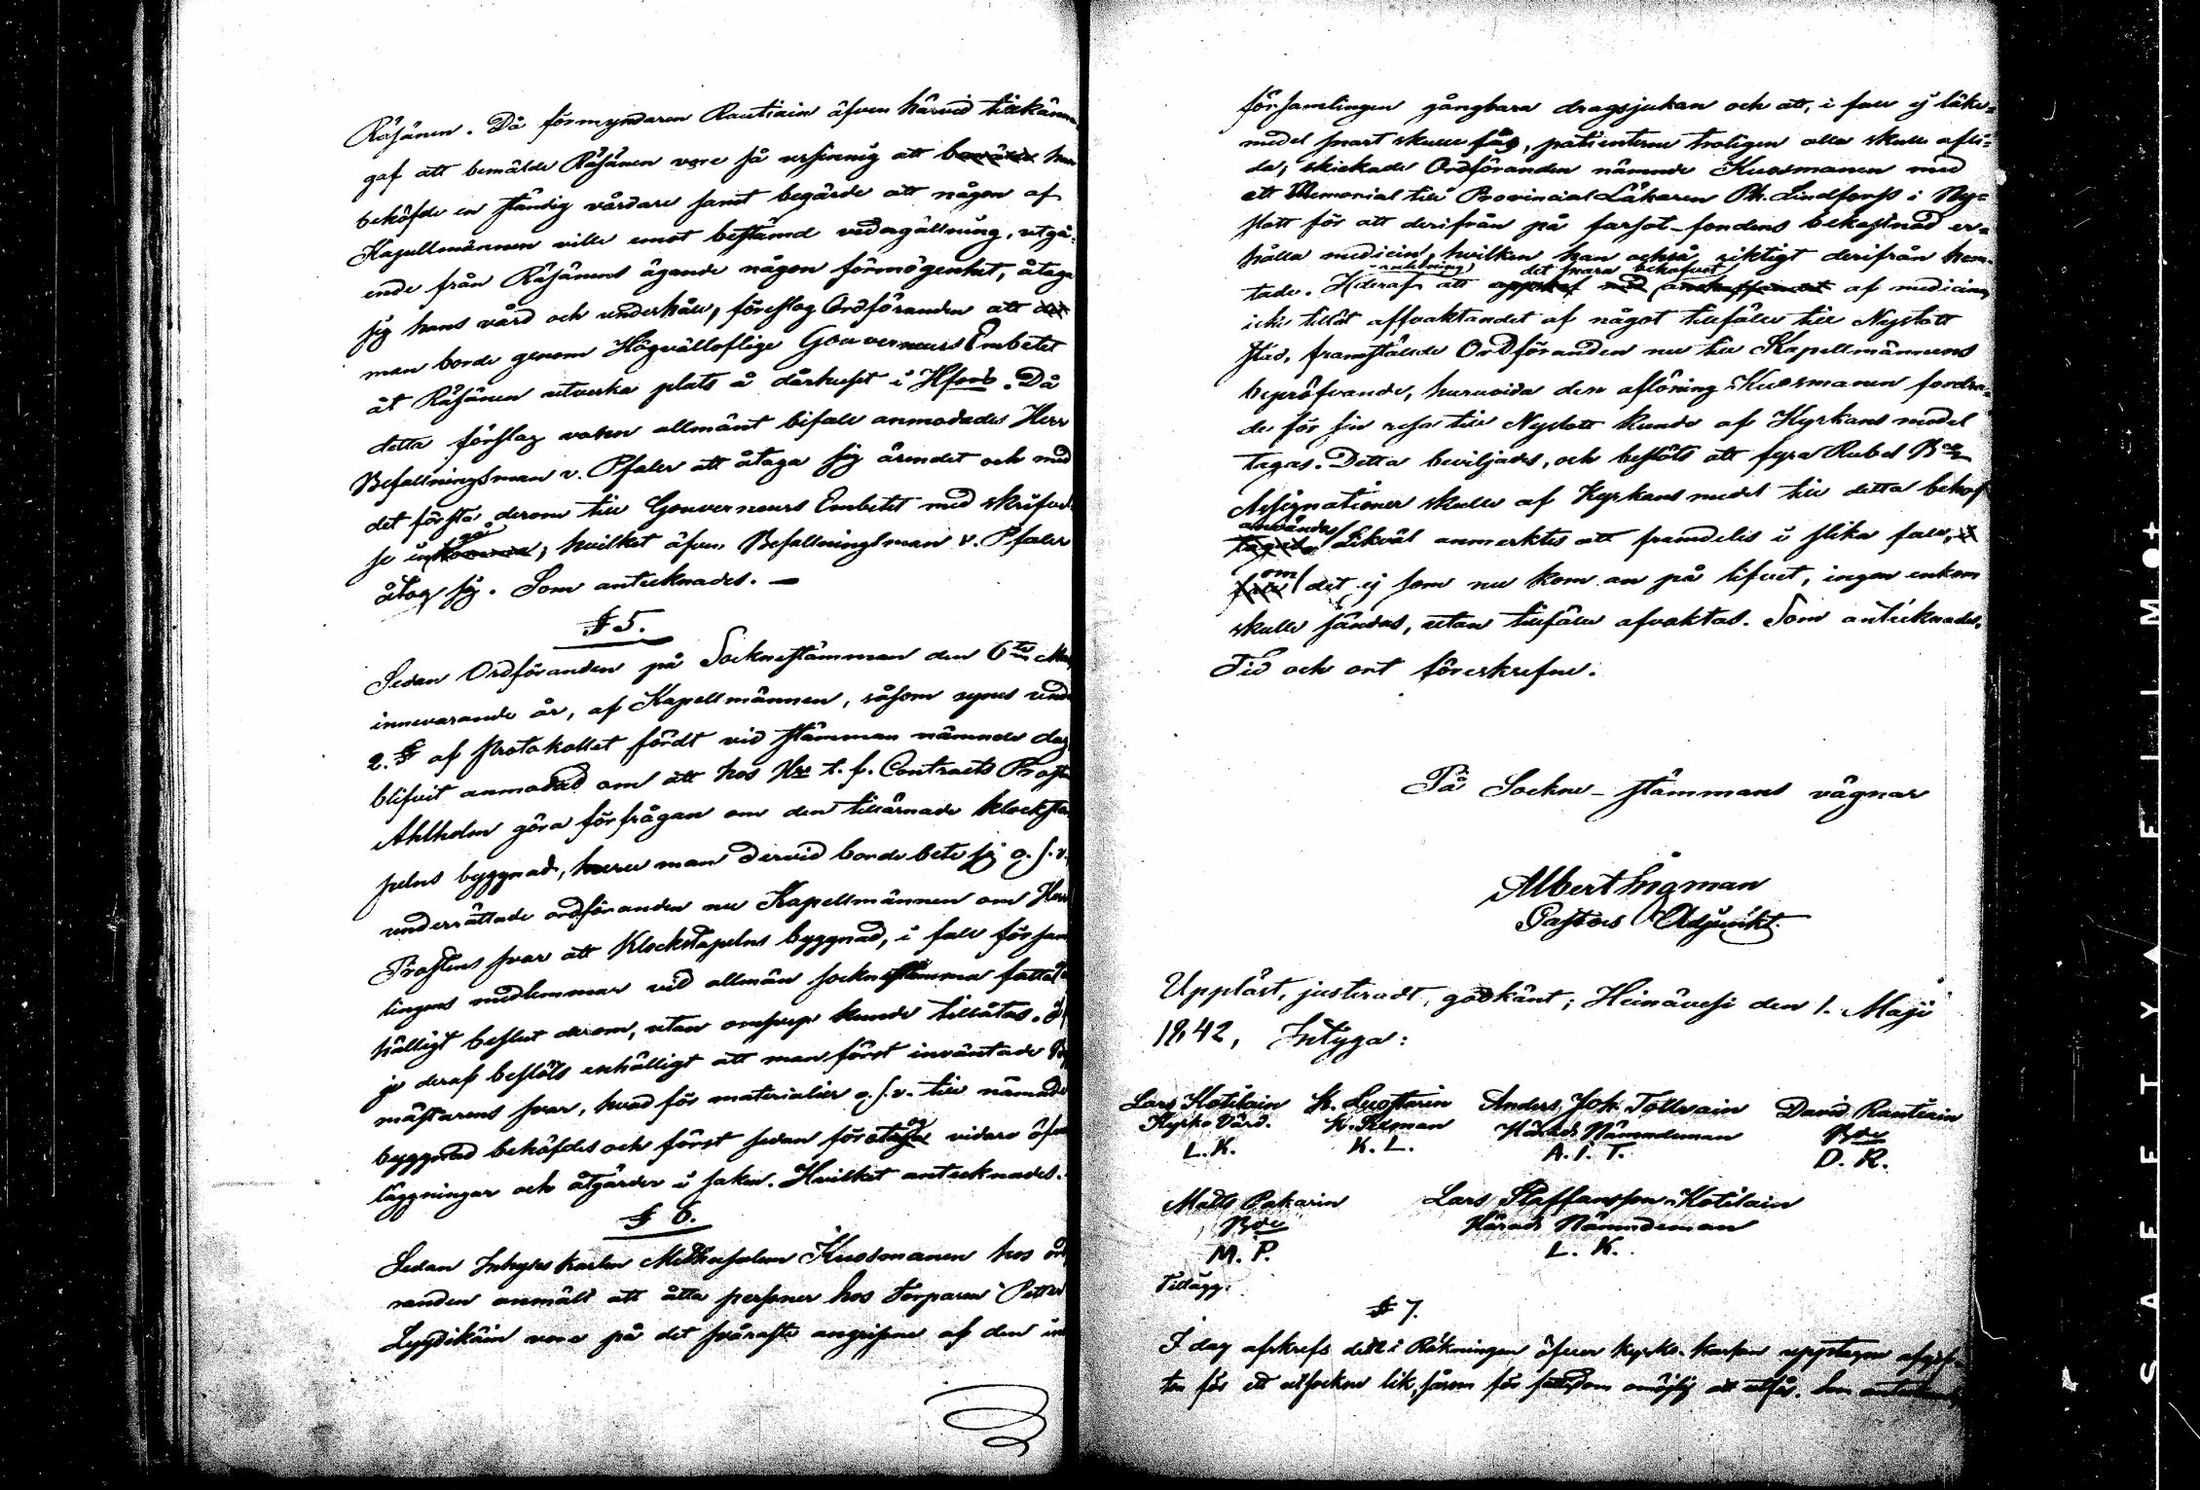 Räsänen. Då förmyndaren Rautiain äfven härvid tillkänna
gaf att bemälde Räsänen vore så ursinnig att han
behöfde en ständig vårdare samt begärde att någon af
Kapellmännen ville emot bestämd vedergällning, utgå-
ende från Räsänens ägande någon förmögenhet, åtaga
sig hans vård och underhåll, föreslog Ordföranden att
man borde genom Högvälloflige Gouverneurs Embetet
åt Räsänen utverka plats å dårhuset i Hfors. Då
detta förslag vann allmänt bifall anmodades Herr
Befallningsman v. Pfaler att åtaga sig ärendet och med
det första derom till Gouverneurs Embetet med skrifvel
se ingå, hvilket äfven Befallningsman v. Pfaler
åtog sig. Som antecknades. —
§ 5.
Sedan Ordföranden på Socknestämman den 6te Mars
innevarande år, af Kapellmännen, såsom synes under
2. § af Protokollet fördt vid stämman nämnde dag
blifvit anmodad om att hos Hr t. f. Contracts Prosten
Ahlholm göra förfrågan om den tillärnade klocksta
pelns byggnad, huru man dervid borde bete sig o. s. v.
underrättade ordföranden nu Kapellmännen om Herr
Prostens svar att Klockstapelns byggnad, i fall försam
lingens medlemmar vid allmän sockne stämma fattat
hälligt beslut derom, utan omsvep kunde tillåtas.
je deraf beslöts enhälligt att man först inväntade
mästarens svar, hvad för materialier o. s. v. till nämnde
byggnad behöfdes och först sedan företaga vidare öfver
läggningar och åtgärder i saken. Hvilket antecknades.
§ 6.
Sedan Inhyses karlen Methusalem Kuosmanen hos ordfö
randen anmält att åtta personer hos Torparen Petter
Lyydikäin vore på det svåraste angripne af den inom
församlingen gångbara dragsjukan och att, i fall ej läke-
medel snart skulle fås, patienterne troligen alla skulle afli-
da, skickade Ordföranden nämnde Kuosmanen med
ett Memorial till Provincial Läkaren Ph. Lindforss i Ny-
slott för att derifrån på farsot-fondens bekostnad er-
hålla medicin, hvilken han också riktigt derifrån hem-
anledning det snara behofvet
tade. I deraf att af medicin
icke tillät affvaktandet af något tillfälle till Nyslott
stad, framstälde Ordföranden nu till Kapellmännens
bepröfvande, huruvida den aflöning Kuosmanen fordra-
de för sin resa till Nyslott kunde af Kyrkans medel
tagas. Detta beviljades, och beslöts att fyra Rubel Bco
Assignationer skulle af Kyrkans medel till detta behof
användas
Likväl anmerktes att framdeles i slika fall,
om det ej som nu kom an på lifvet, ingen enkom
skulle sändas, utan tillfälle afvaktas. Som antecknades.
Tid och ort föreskrefne.
På Sockne-stämmans vägnar
Albert Ingman
Pastors Adjunkt.
Uppläst, justeradt, godkänt; Heinävesi den 1. Maji
1842, Intyga:
Lars Kotilain K. Luostarin Anders Joh. Tolvain David Rautiain
Kyrko Värd. Härads Nämndeman Bde
L. K. K. L. A. J. T. D. R.
Matts Pakarin Lars Staffansson Kotilain
Bde Härads Nämndeman
M. P. L. K.
Tillägg.
§ 7.
I dag afskrefs det i Räkningen öfver kyrko-kassan upptagne afgif-
ten för ett utsocknes lik, såsom för fattigdom omöjlig att utfås. Som antecknades